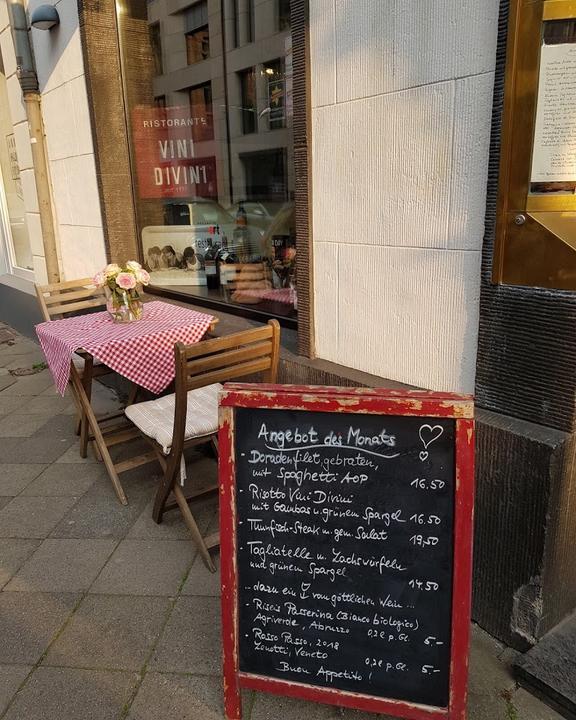 RISTORANTE
VINI
DIVINI
Angebot des Monats
- Doradenfilet gebraten,
mit Spaghetti AOP 16.50
- Risotto Vini Divini
mit Gambas u. grünem Spargel 16.50
- Thunfisch-Steak m. gem. Salat 19,50
Tagliatelle m. Lachswürfeln
und grünem Spargel
14.50
... dazu ein vom göttlichen Wein ...
- Riseis Passerina (Bianco biologico)
Agriverde, Abruzzo 0,2l p. Gl. 5,-
- Rosso Passo, 2018
Zenotti, Veneto 0,2l p. Gl. 5,-
Buon Appetito!